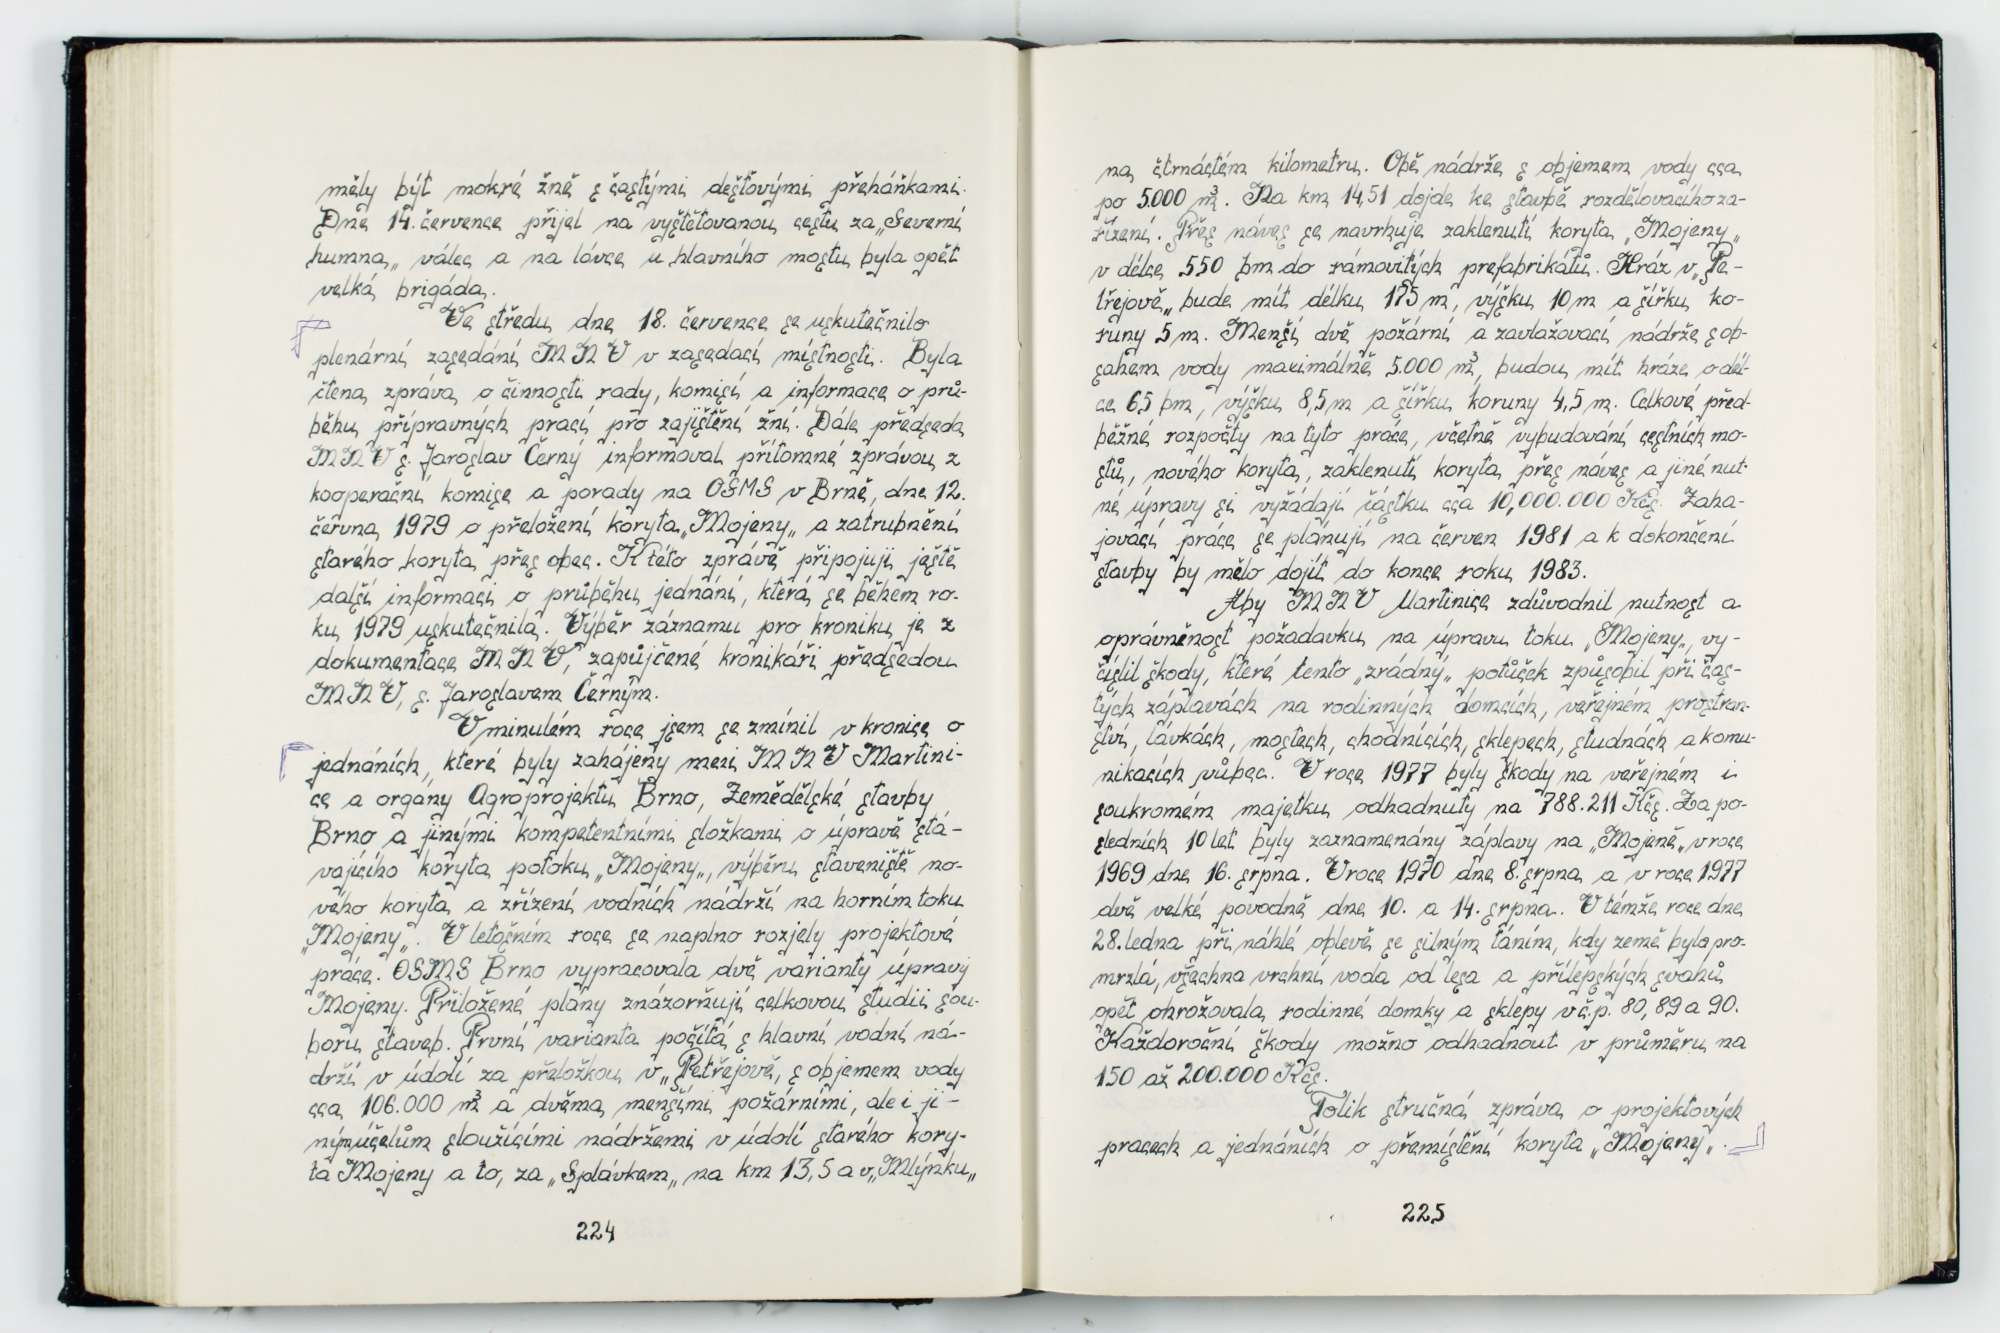 měly být mokré žně s častými dešťovými přeháňkami.
Dne 14. července přijel na vyštětovanou cestu za „Severní
humna„ válec a na lávce u hlavního mostu byla opět
velká brigáda.
Ve středu dne 18. července se uskutečnilo
plenární zasedání MNV v zasedací místnosti. Byla
čtena zpráva o činnosti rady, komisí a informace o prů-
běhu přípravných prací pro zajištění žní. Dále předseda
MNV s. Jaroslav Černý informoval přítomné zprávou z
kooperační komise a porady na OSMS v Brně, dne 12.
června 1979 o přeložení koryta „Mojeny„ a zatrubnění
starého koryta přes obec. K této zprávě připojuji ještě
další informaci o průběhu jednání, která se během ro-
ku 1979 uskutečnila. Výběr záznamu pro kroniku je z
dokumentace MNV, zapůjčené kronikáři předsedou
MNV, s. Jaroslavem Černým.
V minulém roce jsem se zmínil v kronice o
jednáních, které byly zahájeny mezi MNV Martini-
ce a orgány Agroprojektu Brno, Zemědělské stavby
Brno a jinými kompetentními složkami o úpravě stá-
vajícího koryta potoku „Mojeny„, výběru staveniště no-
vého koryta a zřízení vodních nádrží na horním toku
„Mojeny„. V letošním roce se naplno rozjely projektové
práce. OSMS Brno vypracovala dvě varianty úpravy
Mojeny. Přiložené plány znázorňují celkovou studii sou-
boru staveb. První varianta počítá s hlavní vodní ná-
drží v údolí za přeložkou v „Petřejově, s objemem vody
cca 106.000 m³ a dvěma menšími požárními, ale i ji-
ným účelům sloužícími nádržemi v údolí starého kory-
ta Mojeny a to, za „Splávkem„ na km 13,5 a v „Mlýnku„
224
na čtrnáctém kilometru. Obě nádrže s objemem vody cca
po 5.000 m³. Na km 14,51 dojde ke stavbě rozdělovacího za-
řízení. Přes náves se navrhuje zaklenutí koryta „Mojeny„
v délce 550 bm do rámovitých prefabrikátů. Hráz v „Pe-
třejově„ bude mít délku 175 m, výšku 10 m a šířku ko-
runy 5 m. Menší dvě požární a zavlažovací nádrže s ob-
sahem vody maximálně 5.000 m³, budou mít hráze o dél-
ce 65 bm, výšku 8,5 m a šířku koruny 4,5 m. Celkové před-
běžné rozpočty na tyto práce, včetně vybudování cestních mo-
stů, nového koryta, zaklenutí koryta přes náves a jiné nut-
né úpravy si vyžádají částku cca 10,000.000 Kčs. Zaha-
jovací práce se plánují na červen 1981 a k dokončení
stavby by mělo dojít do konce roku 1983.
Aby MNV Martinice zdůvodnil nutnost a
oprávněnost požadavku na úpravu toku „Mojeny„, vy-
číslil škody, které tento „zrádný„ potůček způsobil při čas-
tých záplavách na rodinných domcích, veřejném prostran-
ství, lávkách, mostech, chodnících, sklepech, studnách a komu-
nikacích vůbec. V roce 1977 byly škody na veřejném i
soukromém majetku odhadnuty na 788.211 Kčs. Za po-
sledních 10 let byly zaznamenány záplavy na „Mojeně„ v roce
1969 dne 16. srpna. V roce 1970 dne 8. srpna a v roce 1977
dvě velké povodně dne 10. a 14. srpna. V témže roce dne
28. ledna při náhlé oblevě se silným táním, kdy země byla pro-
mrzlá, všechna vrchní voda od lesa a přílepských svahů
opět ohrožovala rodinné domky a sklepy v č.p. 80, 89 a 90.
Každoroční škody možno odhadnout v průměru na
150 až 200.000 Kčs.
Tolik stručná zpráva o projektových
pracech a jednáních o přemístění koryta „Mojeny„.
225